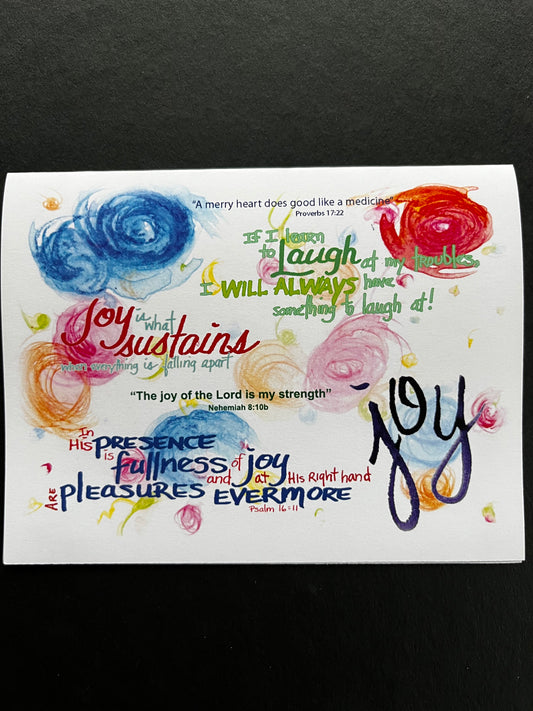 "A merry heart does good like a medicine"
Proverbs 17:22
If I learn
to Laugh at my troubles,
I WILL ALWAYS have
something to laugh at!
Joy is what
sustains
when everything is falling apart
"The joy of the Lord is my strength"
Nehemiah 8:10b
joy
In
His PRESENCE
is fullness of joy
and at His Right hand
ARE pleasures EVERMORE
Psalm 16:11